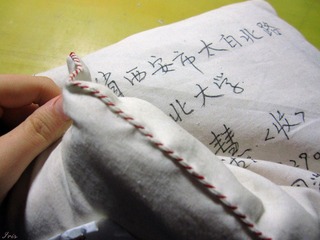 省西安市太白北路
北大学
慧 <收>
290
Iris